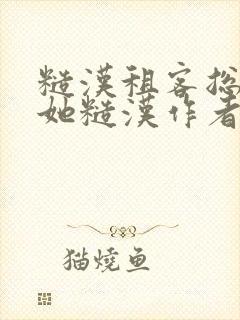 糙漢租客总
她糙漢作者
猫燒鱼